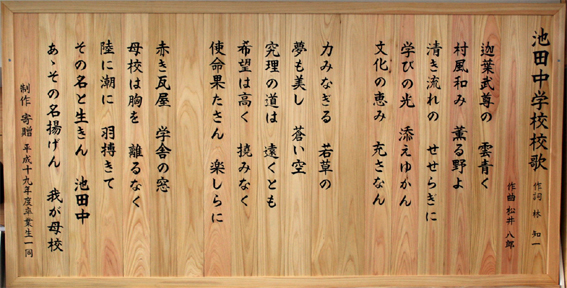 池田中学校校歌
作詞 林 知一
作曲 松井 八郎
迦葉武尊の 雲青く
村風和み 薫る野よ
清き流れの せせらぎに
学びの光 添えゆかん
文化の恵み 充さなん
力みなぎる 若草の
夢も美し 蒼い空
究理の道は 遠くとも
希望は高く 撓みなく
使命果たさん 楽しらに
赤き瓦屋 学舎の窓
母校は胸を 離るなく
陸に潮に 羽搏きて
その名と生きん 池田中
あゝその名揚げん 我が母校
制作 寄贈 平成十九年度卒業生一同